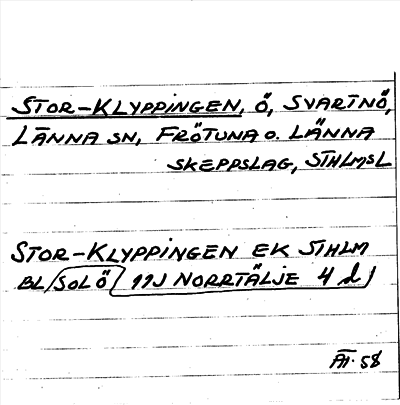 STOR-KLYPPINGEN, Ö, SVARTNÖ,
LÄNNA SN, FRÖTUNA O. LÄNNA
SKEPPSLAG, STHLMSL
STOR-KLYPPINGEN EK STHLM
BL/SOLÖ/ 11J NORRTÄLJE 4 d)
58